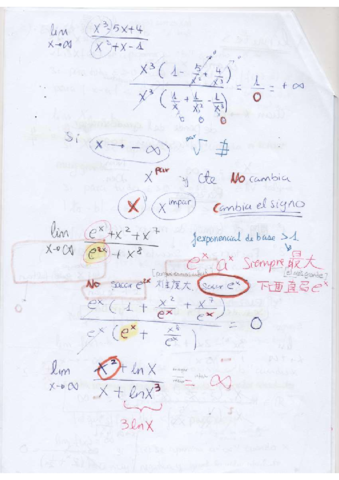 lim x→∞ x³-5x+4 / x²+x-1
x³(1 - 5/x² + 4/x³) / x³(1/x + 1/x² - 1/x³) = 1/0 = +∞
Si x → -∞ √ ∄
x^par y cte No cambia
x x^impar Cambia el signo
lim x→∞ e^x+x²+x⁷ / e^2x + x³
[exponencial de base >1
e^x a^x Siempre 最大
No sacar e^2x 最大 sacar e^x 下面 e^x
e^x(1 + x²/e^x + x⁷/e^x) / e^x(e^x + x³/e^x) = 0
lim x→∞ x²+lnx / x+lnx³ = ∞
3lnx